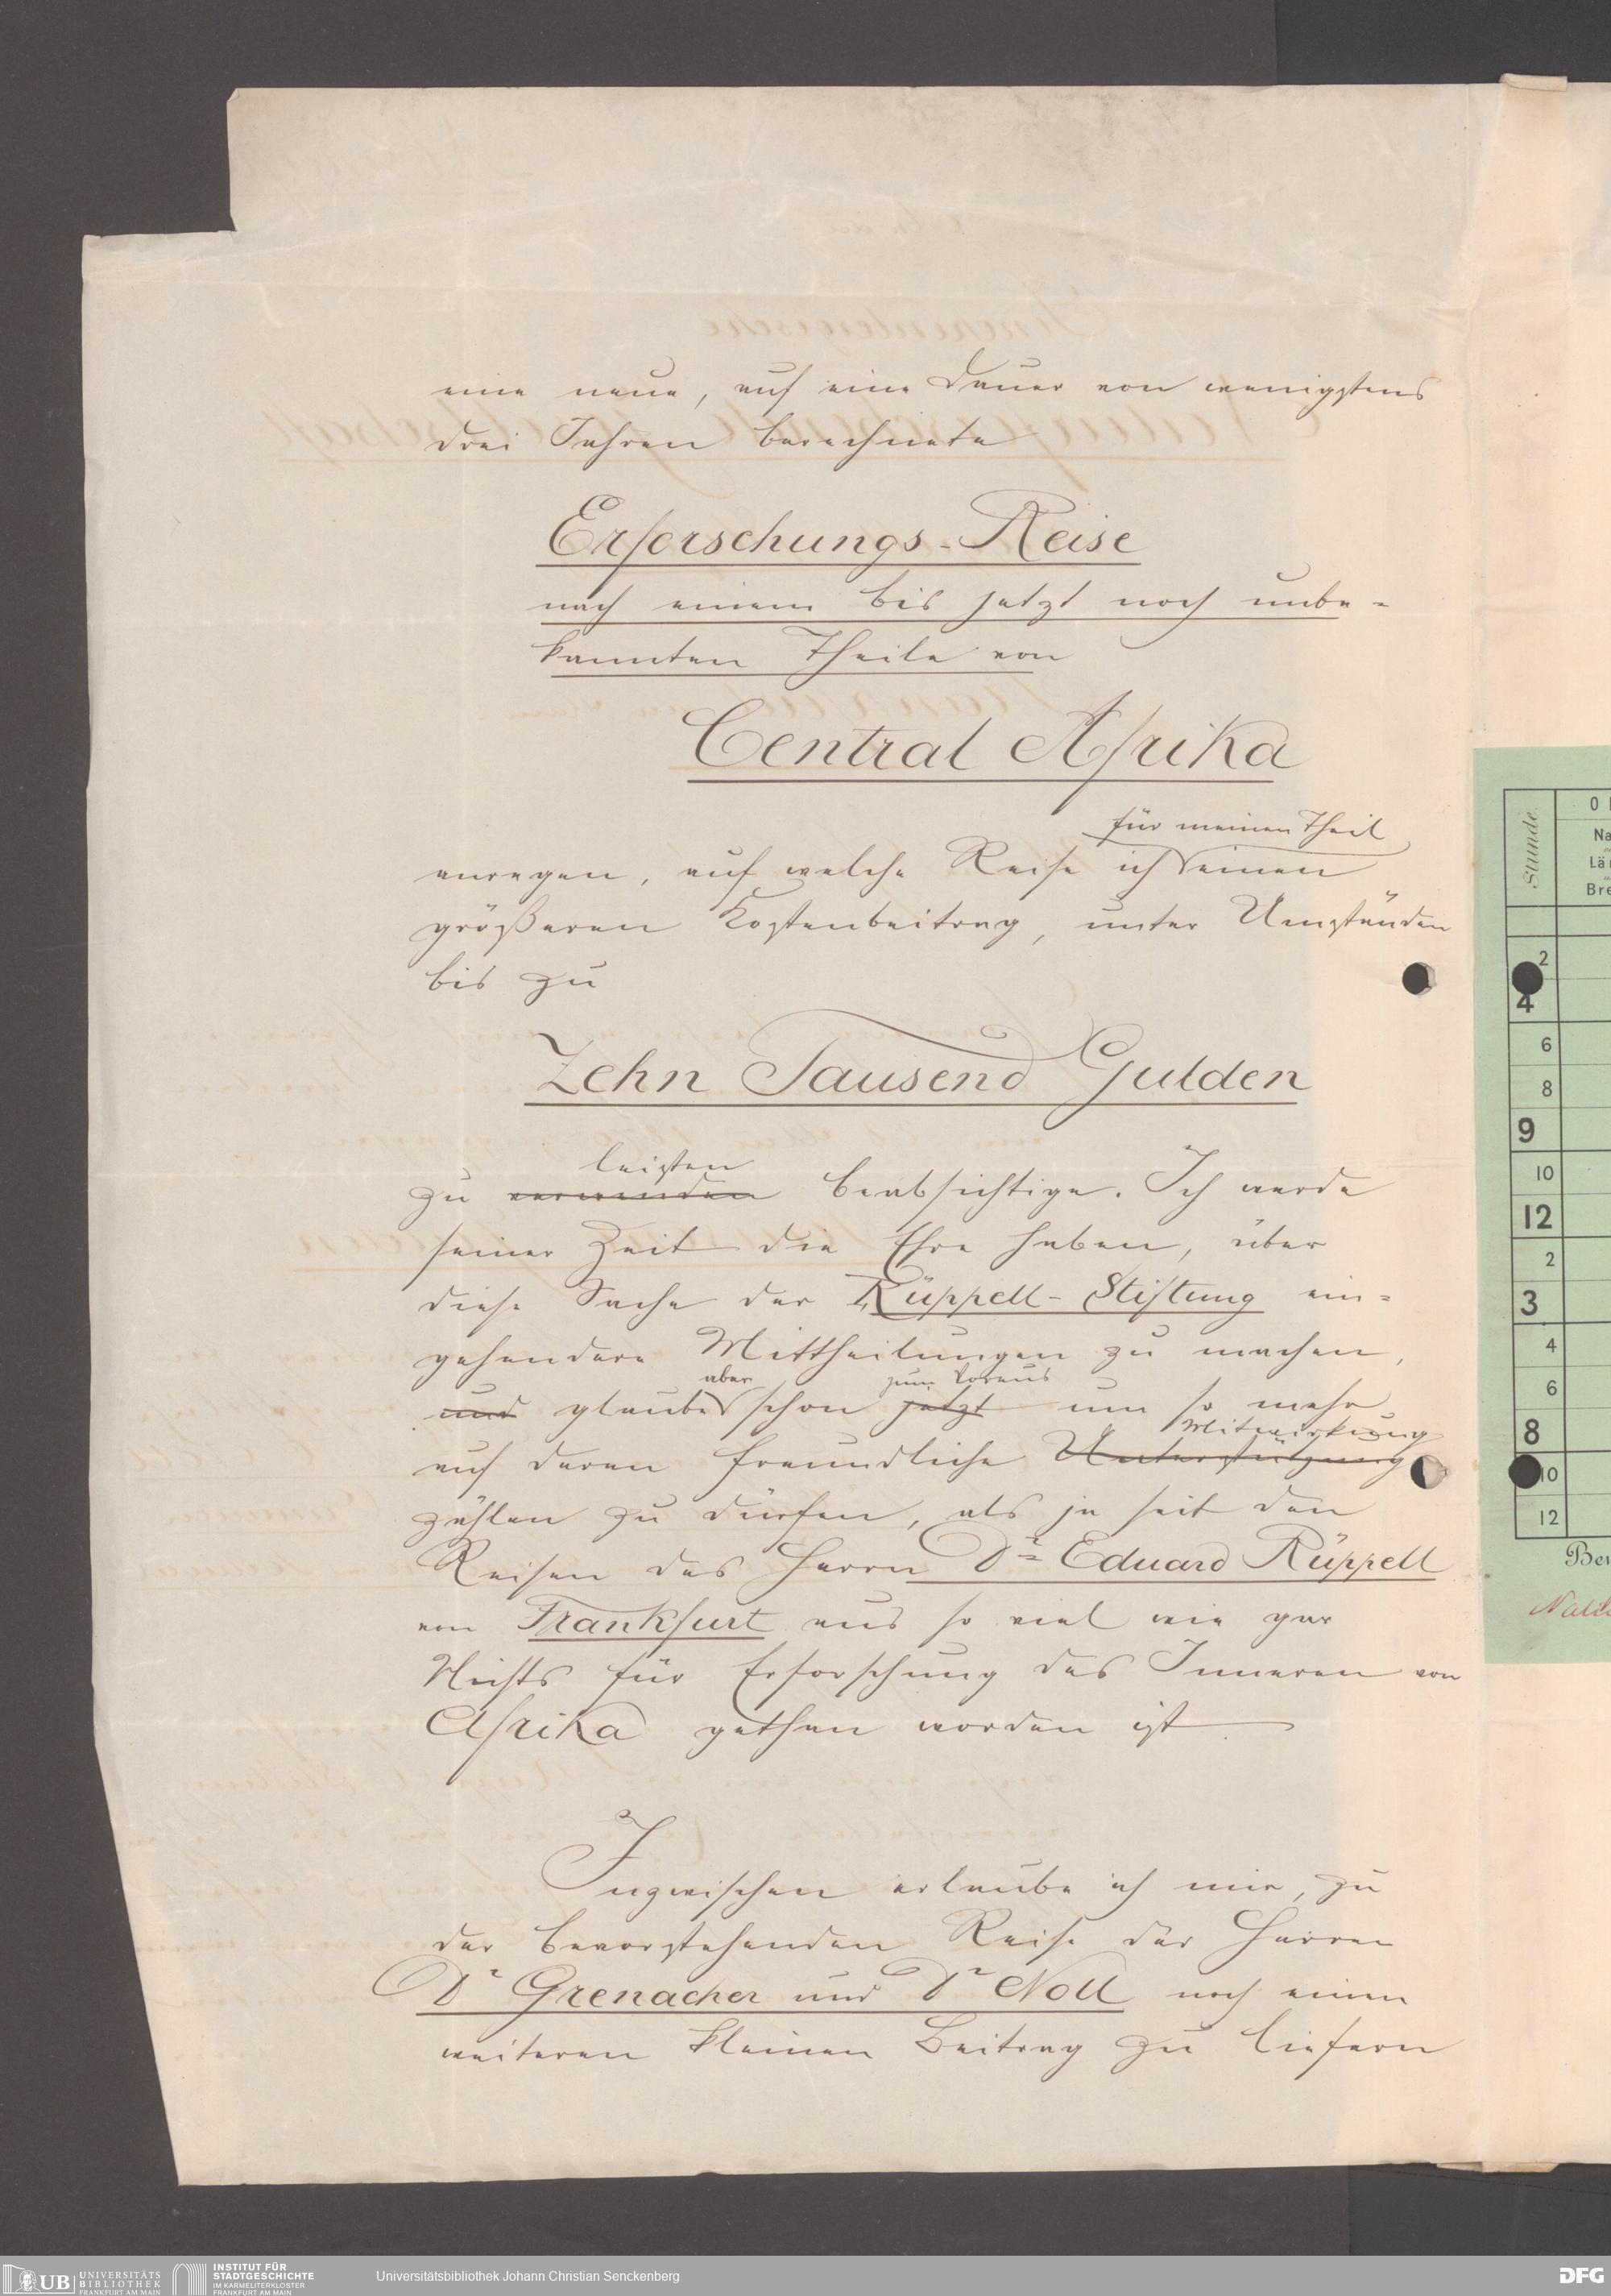 eine neue, auf eine Dauer von wenigstens
drei Jahren berechnete
Erforschungs-Reise
nach einem bis jetzt noch unbe-
kannten Theile von
Central Afrika
für meinen Theil
anregen, auf welche Reise ich einen
größeren Kostenbeitrag, unter Umständen
bis zu
Zehn Tausend Gulden
leisten
zu verwenden beabsichtige. Ich werde
seiner Zeit die Ehre haben, über
diese Sache der Rüppell-Stiftung ein-
gehendere Mittheilungen zu machen,
aber zum Voraus
und glaube schon jetzt um so mehr
Mitwirkung
auf deren freundliche Unterstützung
zählen zu dürfen, als ja seit den
Reisen des Herrn Dr Eduard Rüppell
von Frankfurt aus so viel wie gar
Nichts für Erforschung des Inneren von
Afrika gethan worden ist.
Inzwischen erlaube ich mir, zu
der bevorstehenden Reise der Herren
Dr Grenacher und Dr Noll noch einen
weiteren kleinen Beitrag zu liefern
Stunde
0
Na
Lä
Bre
2
4
6
8
9
10
12
2
3
4
6
8
10
12
UB UNIVERSITÄTS
BIBLIOTHEK
FRANKFURT AM MAIN
INSTITUT FÜR
STADTGESCHICHTE
IM KARMELITERKLOSTER
FRANKFURT AM MAIN
Universitätsbibliothek Johann Christian Senckenberg
DFG